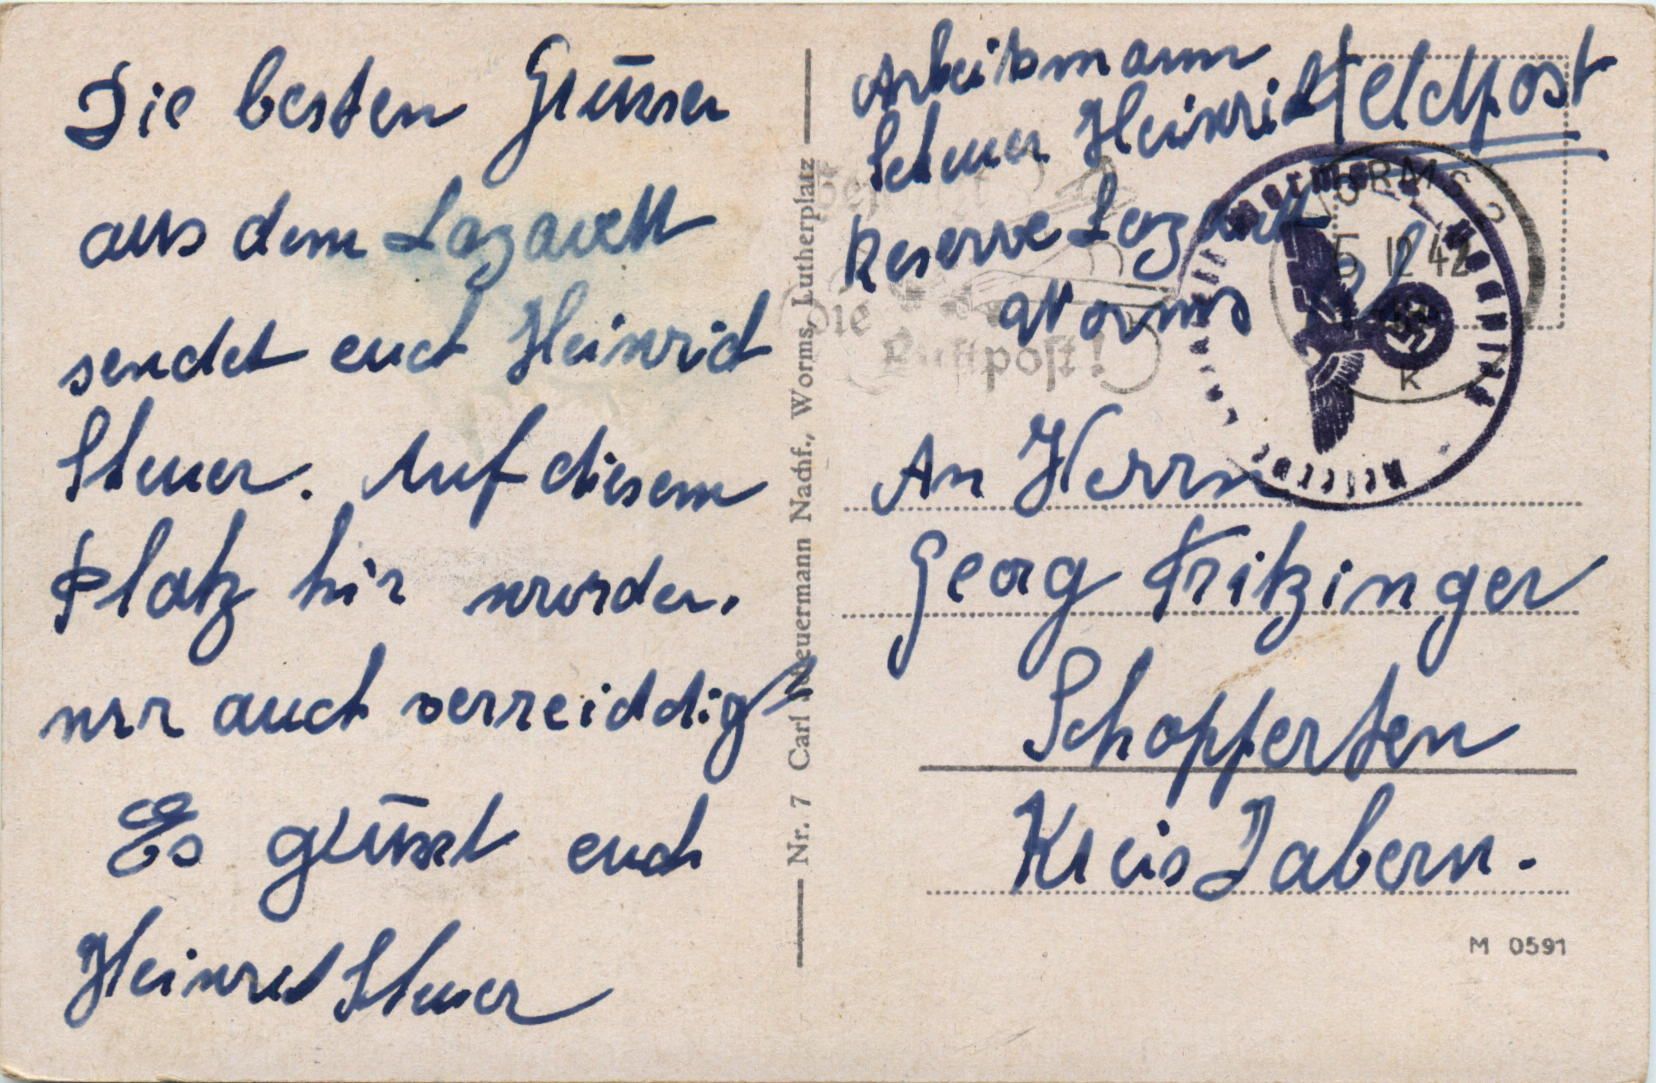 Die besten Grüsser
aus dem Lazarett
sendet euch Heinrich
Steuer. Auf diesem
Platz hir wurden.
wir auch verreiddigt
Es grüsst euch
Heinrich Steuer
Nr. 7 Carl Neuermann Nachf., Worms, Lutherplatz
Arbeitsmann
Steuer Heinrich
Feldpost
Reserve Lazarett
Worms
WORMS 2
5.12.42
k
die
Luftpost!
An Herrn
Georg Fritzinger
Schopperten
Kreis Zabern.
M 0591